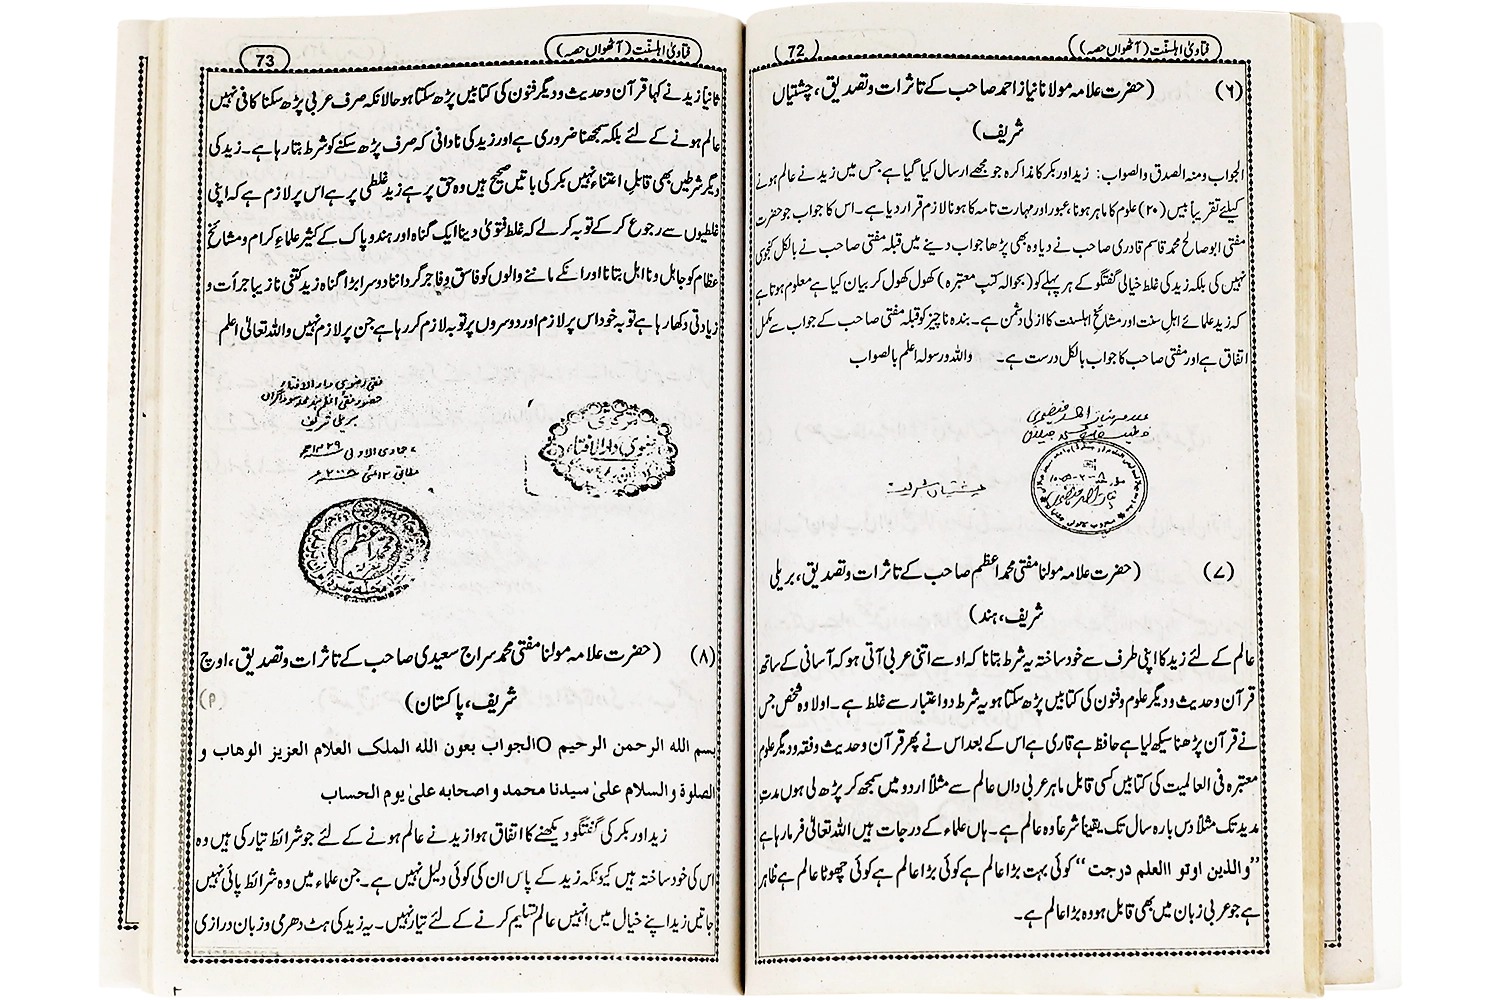 فتاویٰ اہلسنّت (آٹھواں حصہ)
72
(۶) (حضرت علامہ مولانا نیاز احمد صاحب کے تاثرات وتصدیق، چشتیاں
شریف)
الجواب ومنہ الصدق والصواب: زید اور بکر کا مذاکرہ جو مجھے ارسال کیا گیا ہے جس میں زید نے عالم ہونے
کیلئے تقریباً بیس (۲۰) علوم کا ماہر ہونا، عبور اور مہارت تامہ کا ہونا لازم قرار دیا ہے۔ اس کا جواب جو حضرت
مفتی ابو صالح محمد قاسم قادری صاحب نے دیا وہ بھی پڑھا جواب دینے میں قبلہ مفتی صاحب نے بالکل کنجوسی
نہیں کی بلکہ زید کی غلط خیالی گفتگو کے ہر پہلے کو (بحوالہ کتب معتبرہ) کھول کھول کر بیان کیا ہے معلوم ہوتا ہے
کہ زید علمائے اہل سنت اور مشائخ اہلسنت کا ازلی دشمن ہے۔ بندہ ناچیز کو قبلہ مفتی صاحب کے جواب سے مکمل
اتفاق ہے اور مفتی صاحب کا جواب بالکل درست ہے۔ واللہ ورسولہ اعلم بالصواب
چشتیاں شریف
(۷) (حضرت علامہ مولانا مفتی محمد اعظم صاحب کے تاثرات وتصدیق، بریلی
شریف، ہند)
عالم کے لئے زید کا اپنی طرف سے خود ساختہ یہ شرط بتانا کہ اوسے اتنی عربی آتی ہو کہ آسانی کے ساتھ
قرآن وحدیث ودیگر علوم وفنون کی کتابیں پڑھ سکتا ہو یہ شرط دو اعتبار سے غلط ہے۔ اولا وہ شخص جس
نے قرآن پڑھنا سیکھ لیا ہے حافظ ہے قاری ہے اس کے بعد اس نے پھر قرآن وحدیث وفقہ ودیگر علوم
معتبرہ فی العالمیت کی کتابیں کسی قابل ماہر عربی داں عالم سے مثلاً اردو میں سمجھ کر پڑھ لی ہوں مدتِ
مدید تک مثلاً دس بارہ سال تک یقیناً شرعاً وہ عالم ہے۔ ہاں علماء کے درجات ہیں اللہ تعالیٰ فرما رہا ہے
”والذین اوتو االعلم درجت“ کوئی بہت بڑا عالم ہے کوئی بڑا عالم ہے کوئی چھوٹا عالم ہے ظاہر
ہے جو عربی زبان میں بھی قابل ہو وہ بڑا عالم ہے۔
فتاویٰ اہلسنّت (آٹھواں حصہ)
73
ثانیاً زید نے کہا قرآن وحدیث ودیگر فنون کی کتابیں پڑھ سکتا ہو حالانکہ صرف عربی پڑھ سکنا کافی نہیں
عالم ہونے کے لئے بلکہ سمجھنا ضروری ہے اور زید کی نادانی کہ صرف پڑھ سکنے کو شرط بتا رہا ہے۔ زید کی
دیگر شرطیں بھی قابل اعتناء نہیں بکر کی باتیں صحیح ہیں وہ حق پر ہے زید غلطی پر ہے اس پر لازم ہے کہ اپنی
غلطیوں سے رجوع کر کے توبہ کر لے کہ غلط فتویٰ دینا ایک گناہ اور ہند وپاک کے کثیر علماءِ کرام ومشائخ
عظام کو جاہل ونا اہل بتانا اور انکے ماننے والوں کو فاسق وفاجر گرداننا دوسرا بڑا گناہ زید کتنی نازیبا جرأت و
زیادتی دکھا رہا ہے توبہ خود اس پر لازم اور دوسروں پر توبہ لازم کر رہا ہے جن پر لازم نہیں واللہ تعالیٰ اعلم
رضوی دار الافتاء
بریلی شریف
مرکزی
رضوی دارالافتاء
(۸) (حضرت علامہ مولنا مفتی محمد سراج سعیدی صاحب کے تاثرات وتصدیق، اوچ
شریف، پاکستان)
بسم الله الرحمن الرحیم Oالجواب بعون الله الملک العلام العزیز الوهاب و
الصلوة والسلام علیٰ سیدنا محمد واصحابه علیٰ یوم الحساب
زید اور بکر کی گفتگو دیکھنے کا اتفاق ہوا زید نے عالم ہونے کے لئے جو شرائط تیار کی ہیں وہ
اس کی خود ساختہ ہیں کیونکہ زید کے پاس ان کی کوئی دلیل نہیں ہے۔ جن علماء میں وہ شرائط پائی نہیں
جاتیں زید اپنے خیال میں انہیں عالم تسلیم کرنے کے لئے تیار نہیں۔ یہ زید کی ہٹ دھرمی وزبان درازی